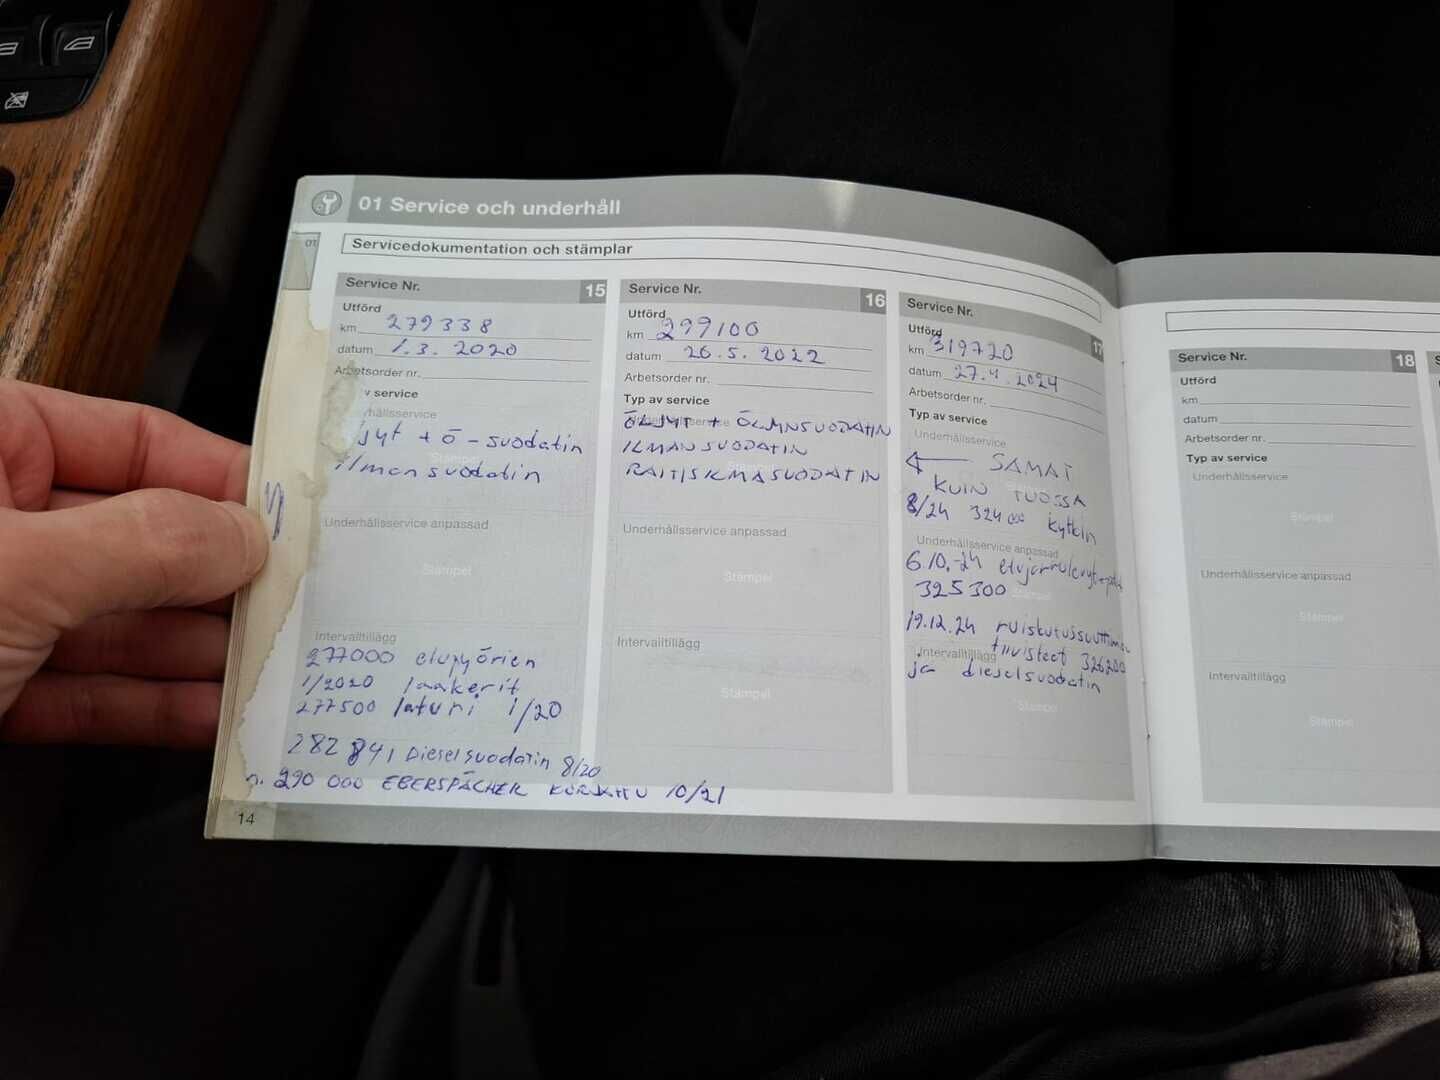 01 Service och underhåll
01
Servicedokumentation och stämplar
Service Nr. 15
Utförd
km 279338
datum 1.3. 2020
Arbetsorder nr.
v service
hållsservice
jyt + ö-suodatin
Stämpel
ilmansuodatin
Underhållsservice anpassad
Stämpel
Intervalltillägg
277000 etupyörien
1/2020 laakerit
277500 laturi 1/20
282841 Dieselsuodatin 8/20
n. 290 000 EBERSPÄCHER KORJATTU 10/21
14
Service Nr. 16
Utförd
km 299100
datum 26.5. 2022
Arbetsorder nr.
Typ av service
Underhållsservice
ÖLJYT + ÖLJYNSUODATIN
ILMANSUODATIN
RAITISILMASUODATIN
Underhållsservice anpassad
Stämpel
Intervalltillägg
Stämpel
Service Nr. 17
Utförd
km 319720
datum 27.4.2024
Arbetsorder nr.
Typ av service
Underhållsservice
← SAMAT
KUIN TUOSSA
8/24 324 000 kytkin
Underhållsservice anpassad
6.10.-24 etujarrulevyt+palat
325300
Stämpel
19.12.24 ruiskutussuuttimen
tiivisteet 326200
Intervalltillägg
ja dieselsuodatin
Stämpel
Service Nr. 18
Utförd
km
datum
Arbetsorder nr.
Typ av service
Underhållsservice
Stämpel
Underhållsservice anpassad
Stämpel
Intervalltillägg
Stämpel